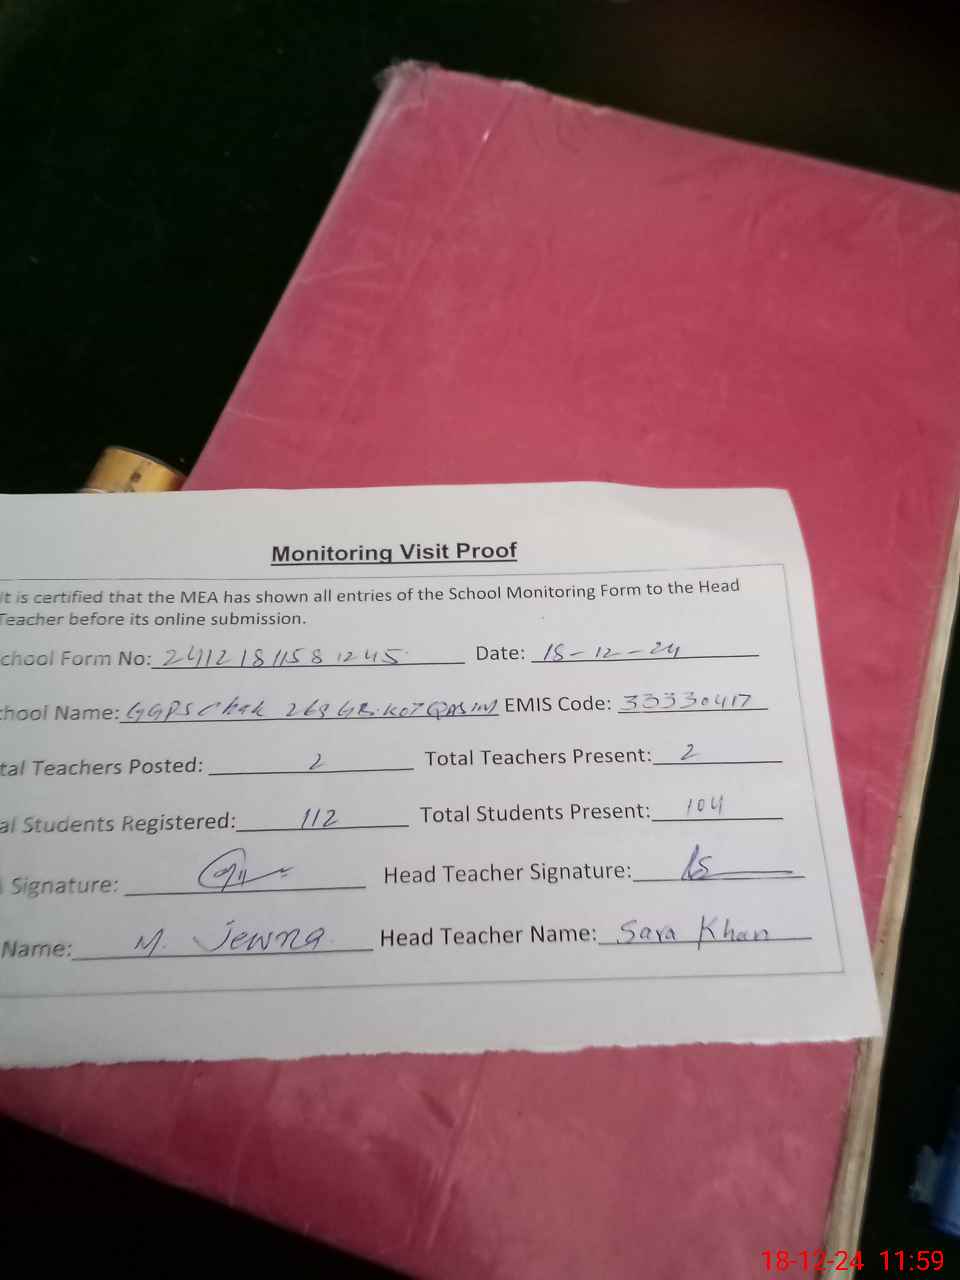 Monitoring Visit Proof
it is certified that the MEA has shown all entries of the School Monitoring Form to the Head
Teacher before its online submission.
chool Form No: 24121811581245 Date: 18-12-24
hool Name: GGPS Chak 268 GB. KOT QASIM EMIS Code: 33330417
tal Teachers Posted: 2 Total Teachers Present: 2
al Students Registered: 112 Total Students Present: 104
Signature: Head Teacher Signature:
Name: M. Head Teacher Name: Sara Khan
18-12-24 11:59